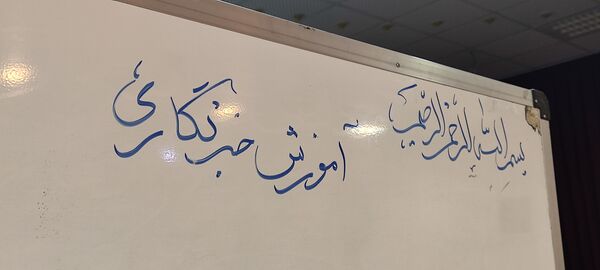 بسم الله الرحمن الرحیم
آموزش خبرنگاری